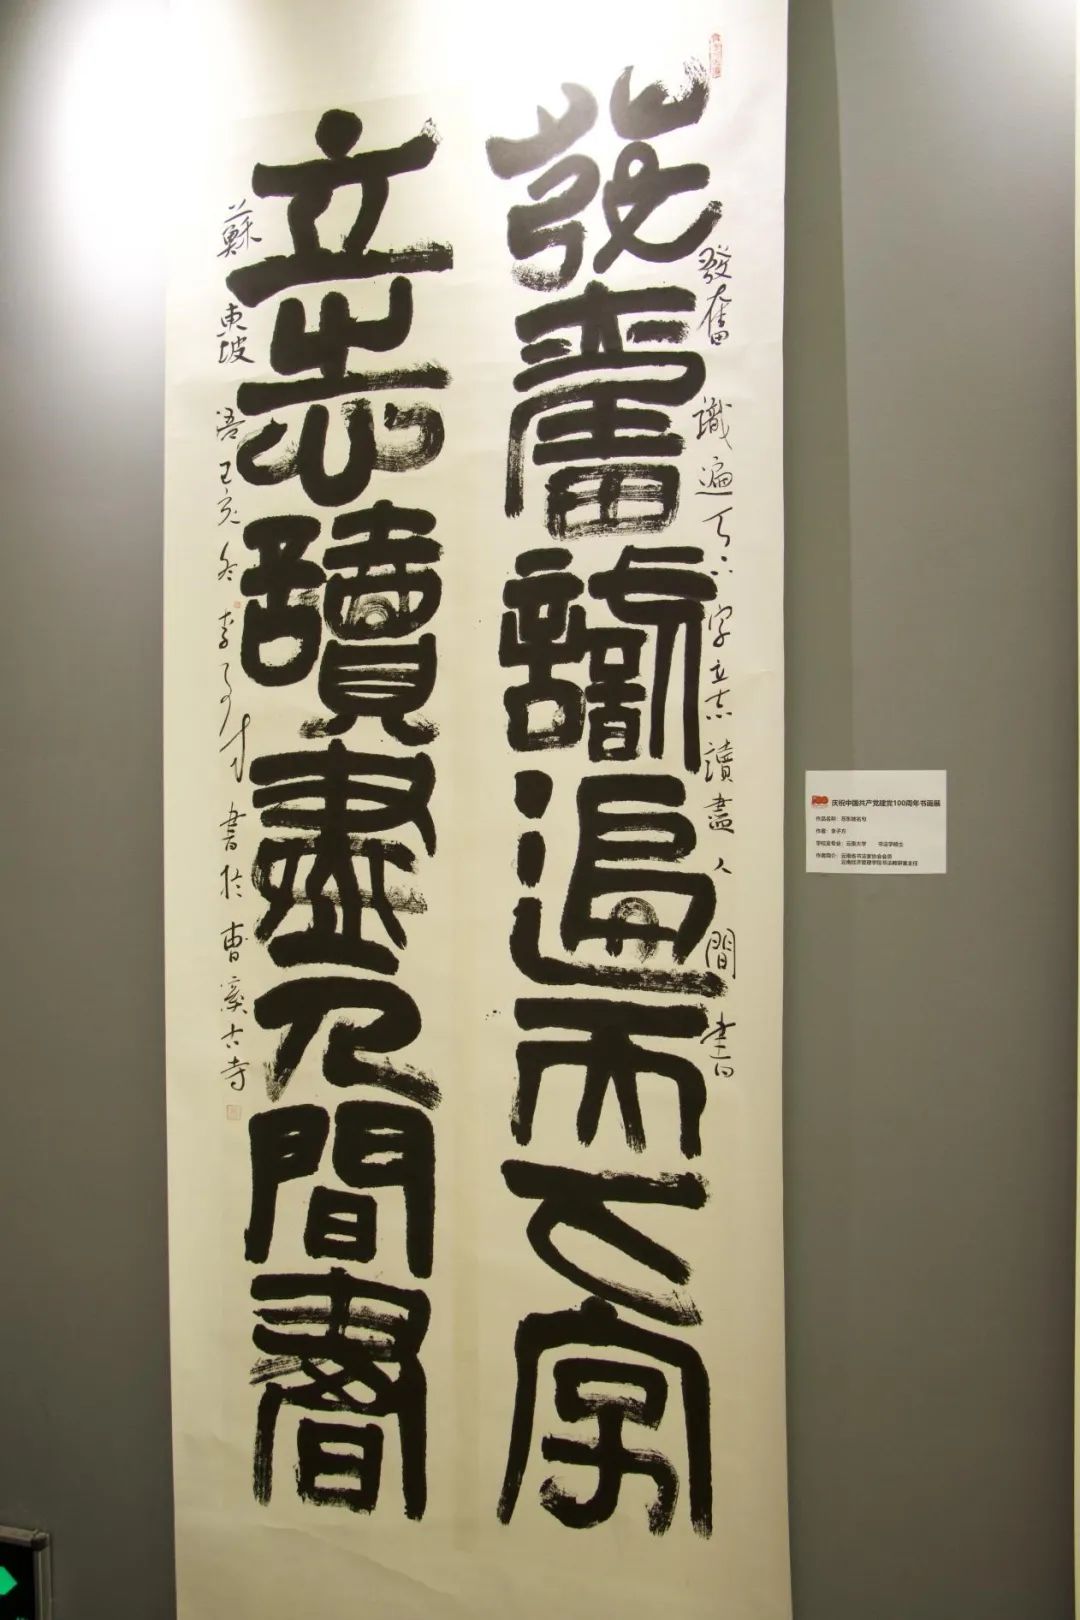 發奮識遍天下字立志讀盡人間書
發奮識遍天下字
立志讀盡人間書
蘇東坡語己亥冬李子方書於曹溪古寺
庆祝中国共产党建党100周年书画展
作品名称：苏东坡名句
作者：李子方
学校及专业：云南大学 书法学硕士
作者简介：云南省书法家协会会员
云南经济管理学院书法教研室主任